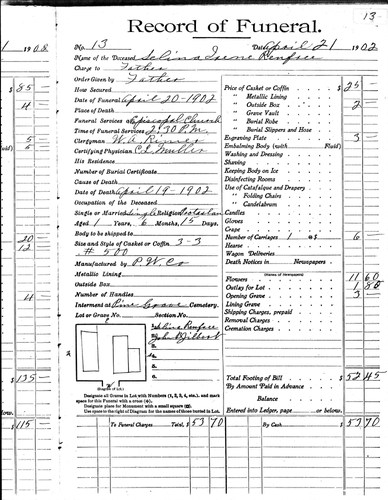 13
Record of Funeral.
No. 13 Date April 21 1902
Name of the Deceased Selina Irene Renfree
Charge to Father
Order Given by Father
How Secured
Date of Funeral April 20-1902
Place of Death
Funeral Services Episcopal Church
Time of Funeral Services 2:30 P.M.
Clergyman W. A.
Certifying Physician
His Residence
Number of Burial Certificate
Cause of Death
Date of Death April 19-1902
Occupation of the Deceased
Single or Married Single Religion Protestan
Aged 1 Years, 6 Months, 15 Days,
Body to be shipped to
Size and Style of Casket or Coffin, 3-3
# 500
Manufactured by P. W. Co
Metallic Lining
Outside Box
Number of Handles
Interment at Pine Grove Cemetery.
Lot or Grave No. Section No.
Selina Renfree
John Gilbert
(Diagram of Lot.)
Designate all Graves in Lot with Numbers (1, 2, 3, 4, etc.), and mark
space for this Funeral with a cross (x).
Designate place for Monument with a small square (□).
Use space to the right of Diagram for the names of those buried in Lot.
To Funeral Charges Total, $ 53 70
Price of Casket or Coffin $ 25
" Metallic Lining
" Outside Box 2
" Grave Vault
" Burial Robe
" Burial Slippers and Hose
Engraving Plate 3
Embalming Body (with Fluid)
Washing and Dressing
Shaving
Keeping Body on Ice
Disinfecting Rooms
Use of Catafalque and Drapery
" Folding Chairs
" Candelabrum
Candles
Gloves
Crape
Number of Carriages 1 @ $ 6
Hearse
Wagon Deliveries
Death Notices in Newspapers
(Names of Newspapers)
Flowers 11 60
Outlay for Lot 1 80
Opening Grave 3
Lining Grave
Shipping Charges, prepaid
Removal Charges
Cremation Charges
Total Footing of Bill $ 52 45
By Amount Paid in Advance
Balance
Entered into Ledger, page or below.
By Cash $ 53 70
1908
$ 85
4
5
5
20
12
4
$ 135
$ 115